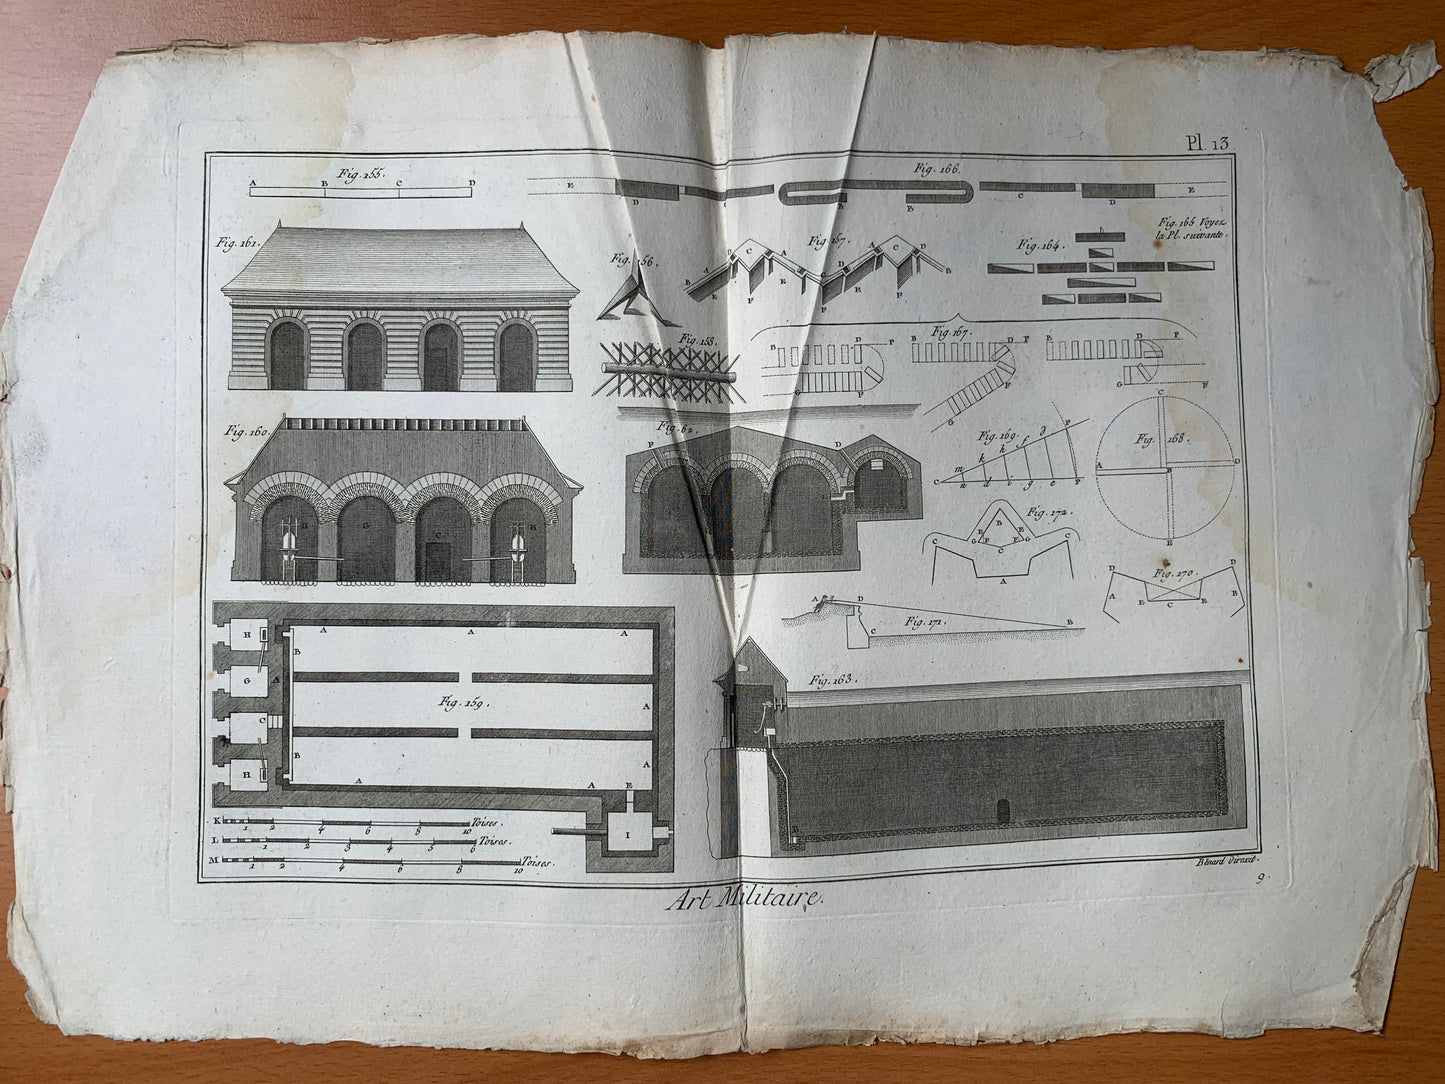 Pl. 13.
Fig. 155.
A B C D
Fig. 166.
E D C B B C D E
Fig. 161.
Fig. 156.
Fig. 157.
A C A C D A C D B
B E F E F F
Fig. 164.
Fig. 165 Voyez
la Pl. suivante.
Fig. 158.
Fig. 167.
B D P
G F
B D P
F
G
B D P
G F
Fig. 160.
H G C H
Fig. 62.
F D
Fig. 169.
C m k h f d F
n d i g e F
Fig. 168.
C
A D
E
Fig. 172.
B
E E
C G F F G C
C
A
Fig. 170.
D D
A E C E B
Fig. 171.
A D
C B
Fig. 159.
H A A A
B
G A
A
C
B A
H A A E
I
Fig. 163.
B
K 1 2 4 6 8 10 Toises.
L 1 2 3 4 5 6 Toises.
M 1 2 4 6 8 10 Toises.
Bénard direxit.
Art Militaire.
9.